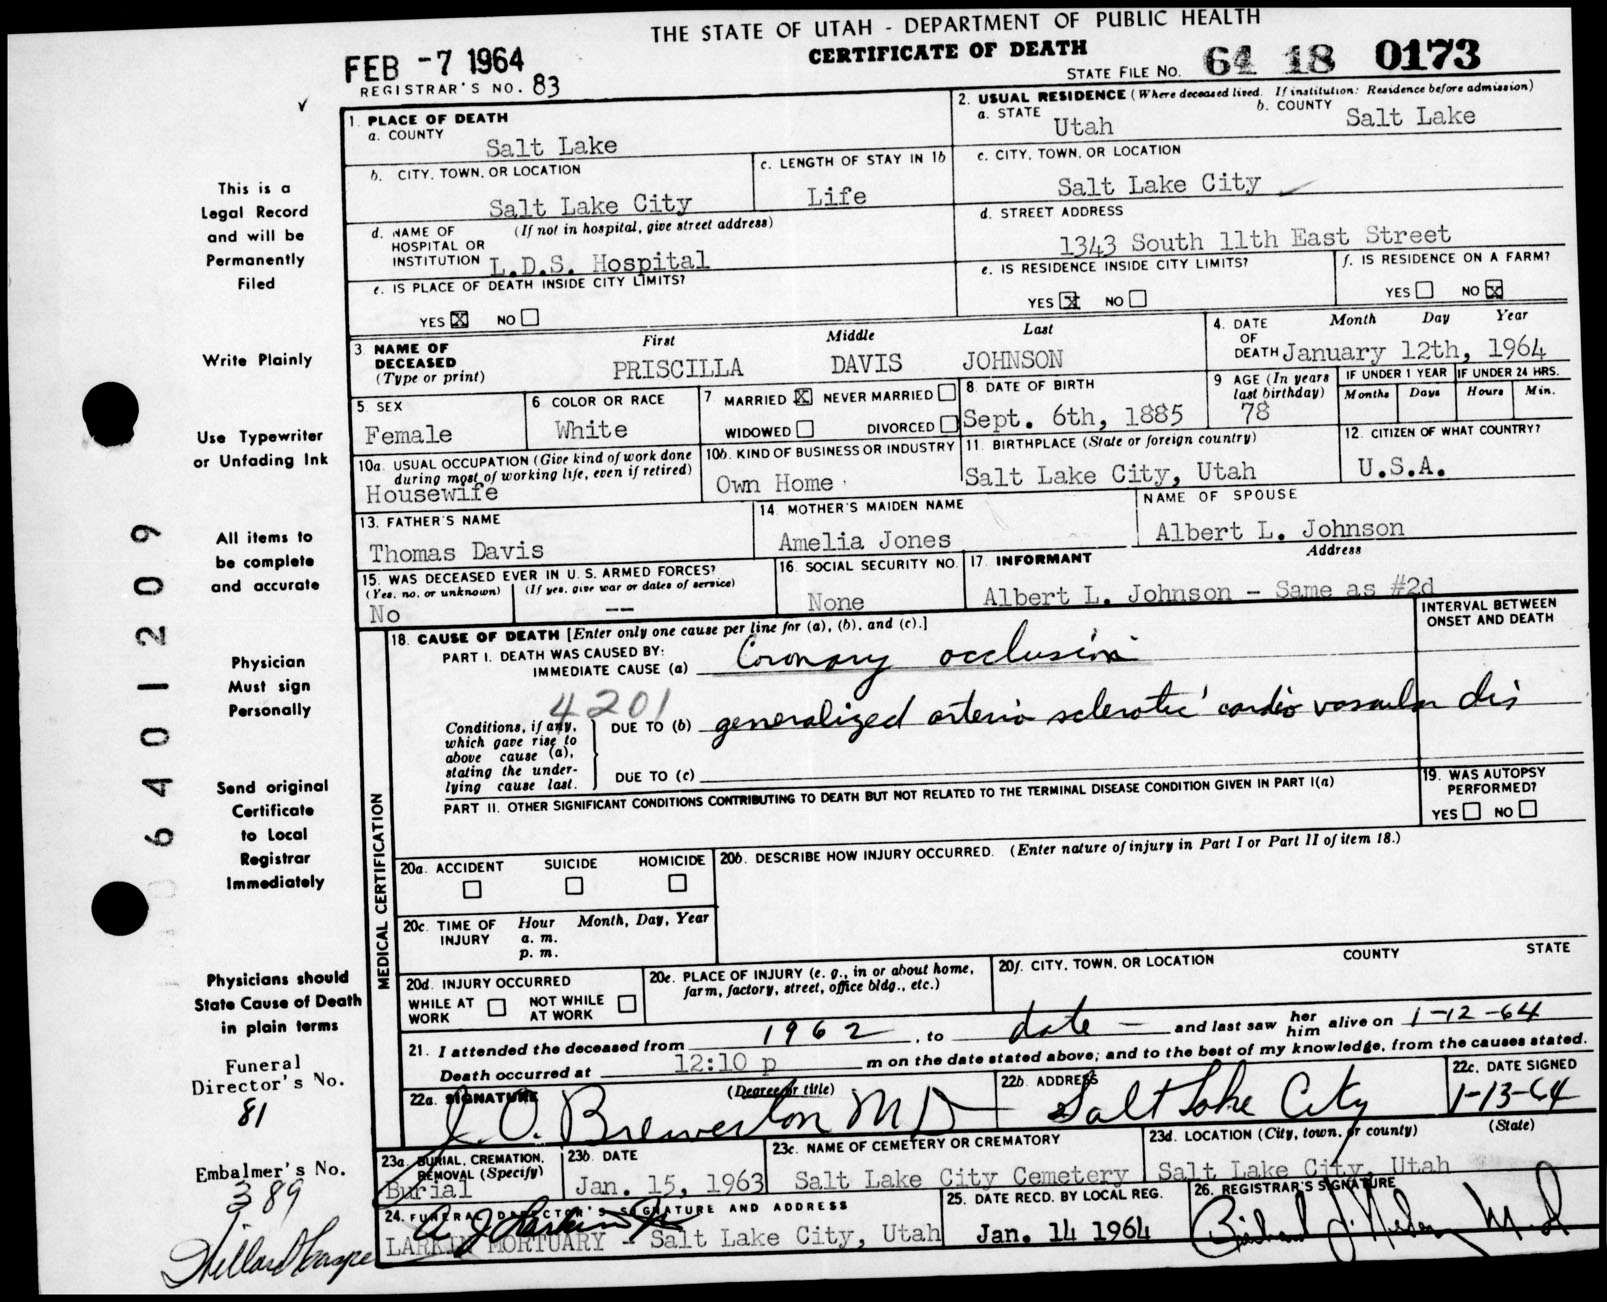 THE STATE OF UTAH - DEPARTMENT OF PUBLIC HEALTH
CERTIFICATE OF DEATH
FEB -7 1964
REGISTRAR'S NO. 83
STATE FILE NO. 64 18 0173
This is a
Legal Record
and will be
Permanently
Filed
Write Plainly
Use Typewriter
or Unfading Ink
All items to
be complete
and accurate
Physician
Must sign
Personally
Send original
Certificate
to Local
Registrar
Immediately
Physicians should
State Cause of Death
in plain terms
Funeral
Director's No.
81
Embalmer's No.
389
6401209
1. PLACE OF DEATH
a. COUNTY
Salt Lake
b. CITY, TOWN, OR LOCATION
Salt Lake City
c. LENGTH OF STAY IN 1b
Life
d. NAME OF HOSPITAL OR INSTITUTION (If not in hospital, give street address)
L.D.S. Hospital
e. IS PLACE OF DEATH INSIDE CITY LIMITS?
YES ☒ NO ☐
2. USUAL RESIDENCE (Where deceased lived. If institution: Residence before admission)
a. STATE
Utah
b. COUNTY
Salt Lake
c. CITY, TOWN, OR LOCATION
Salt Lake City
d. STREET ADDRESS
1343 South 11th East Street
e. IS RESIDENCE INSIDE CITY LIMITS?
YES ☒ NO ☐
f. IS RESIDENCE ON A FARM?
YES ☐ NO ☒
3. NAME OF DECEASED (Type or print)
First Middle Last
PRISCILLA DAVIS JOHNSON
4. DATE OF DEATH
Month Day Year
January 12th, 1964
5. SEX
Female
6. COLOR OR RACE
White
7. MARRIED ☒ NEVER MARRIED ☐
WIDOWED ☐ DIVORCED ☐
8. DATE OF BIRTH
Sept. 6th, 1885
9. AGE (In years last birthday)
78
IF UNDER 1 YEAR
Months Days
IF UNDER 24 HRS.
Hours Min.
10a. USUAL OCCUPATION (Give kind of work done during most of working life, even if retired)
Housewife
10b. KIND OF BUSINESS OR INDUSTRY
Own Home
11. BIRTHPLACE (State or foreign country)
Salt Lake City, Utah
12. CITIZEN OF WHAT COUNTRY?
U.S.A.
13. FATHER'S NAME
Thomas Davis
14. MOTHER'S MAIDEN NAME
Amelia Jones
NAME OF SPOUSE
Albert L. Johnson
15. WAS DECEASED EVER IN U. S. ARMED FORCES?
(Yes, no, or unknown) (If yes, give war or dates of service)
No --
16. SOCIAL SECURITY NO.
None
17. INFORMANT Address
Albert L. Johnson - Same as #2d
MEDICAL CERTIFICATION
18. CAUSE OF DEATH [Enter only one cause per line for (a), (b), and (c).]
INTERVAL BETWEEN ONSET AND DEATH
PART I. DEATH WAS CAUSED BY:
IMMEDIATE CAUSE (a) Coronary occlusion
4201
Conditions, if any, which gave rise to above cause (a), stating the underlying cause last.
DUE TO (b) generalized arterio sclerotic cardio vascular dis
DUE TO (c)
PART II. OTHER SIGNIFICANT CONDITIONS CONTRIBUTING TO DEATH BUT NOT RELATED TO THE TERMINAL DISEASE CONDITION GIVEN IN PART I(a)
19. WAS AUTOPSY PERFORMED?
YES ☐ NO ☐
20a. ACCIDENT SUICIDE HOMICIDE
☐ ☐ ☐
20b. DESCRIBE HOW INJURY OCCURRED. (Enter nature of injury in Part I or Part II of item 18.)
20c. TIME OF INJURY Hour Month, Day, Year
a. m.
p. m.
20d. INJURY OCCURRED
WHILE AT WORK ☐ NOT WHILE AT WORK ☐
20e. PLACE OF INJURY (e. g., in or about home, farm, factory, street, office bldg., etc.)
20f. CITY, TOWN, OR LOCATION COUNTY STATE
21. I attended the deceased from 1962, to date — and last saw her him alive on 1-12-64
Death occurred at 12:10 p m on the date stated above; and to the best of my knowledge, from the causes stated.
22a. SIGNATURE (Degree or title)
J. O. Brewerton MD
22b. ADDRESS
Salt Lake City
22c. DATE SIGNED
1-13-64
23a. BURIAL, CREMATION, REMOVAL (Specify)
Burial
23b. DATE
Jan. 15, 1963
23c. NAME OF CEMETERY OR CREMATORY
Salt Lake City Cemetery
23d. LOCATION (City, town, or county) (State)
Salt Lake City, Utah
24. FUNERAL DIRECTOR'S SIGNATURE AND ADDRESS
LARKIN MORTUARY - Salt Lake City, Utah
25. DATE RECD. BY LOCAL REG.
Jan. 14 1964
26. REGISTRAR'S SIGNATURE